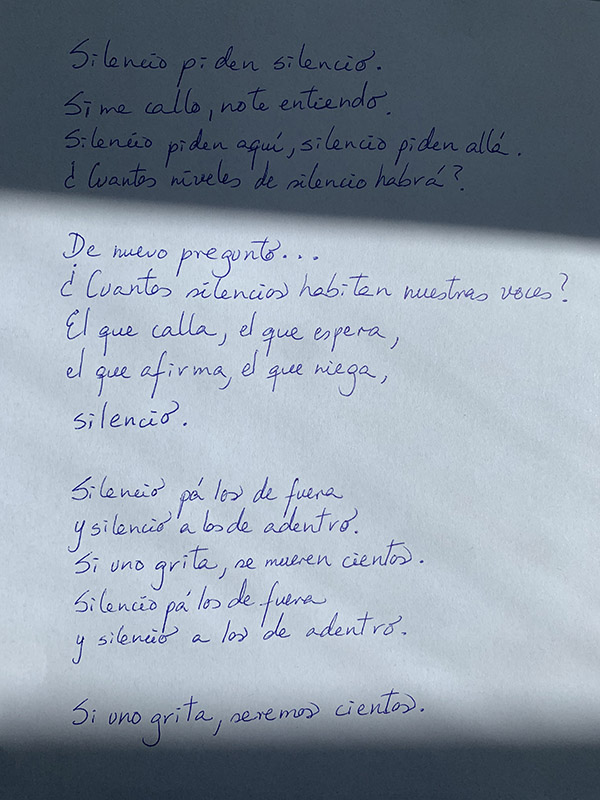 Silencio piden silencio.
Si me callo, no te entiendo.
Silencio piden aquí, silencio piden allá.
¿Cuantos niveles de silencio habrá?
De nuevo pregunto...
¿Cuantos silencios habitan nuestras voces?
El que calla, el que espera,
el que afirma, el que niega,
silencio.
Silencio pá los de fuera
y silencio a los de adentro.
Si uno grita, se mueren cientos.
Silencio pá los de fuera
y silencio a los de adentro.
Si uno grita, seremos cientos.